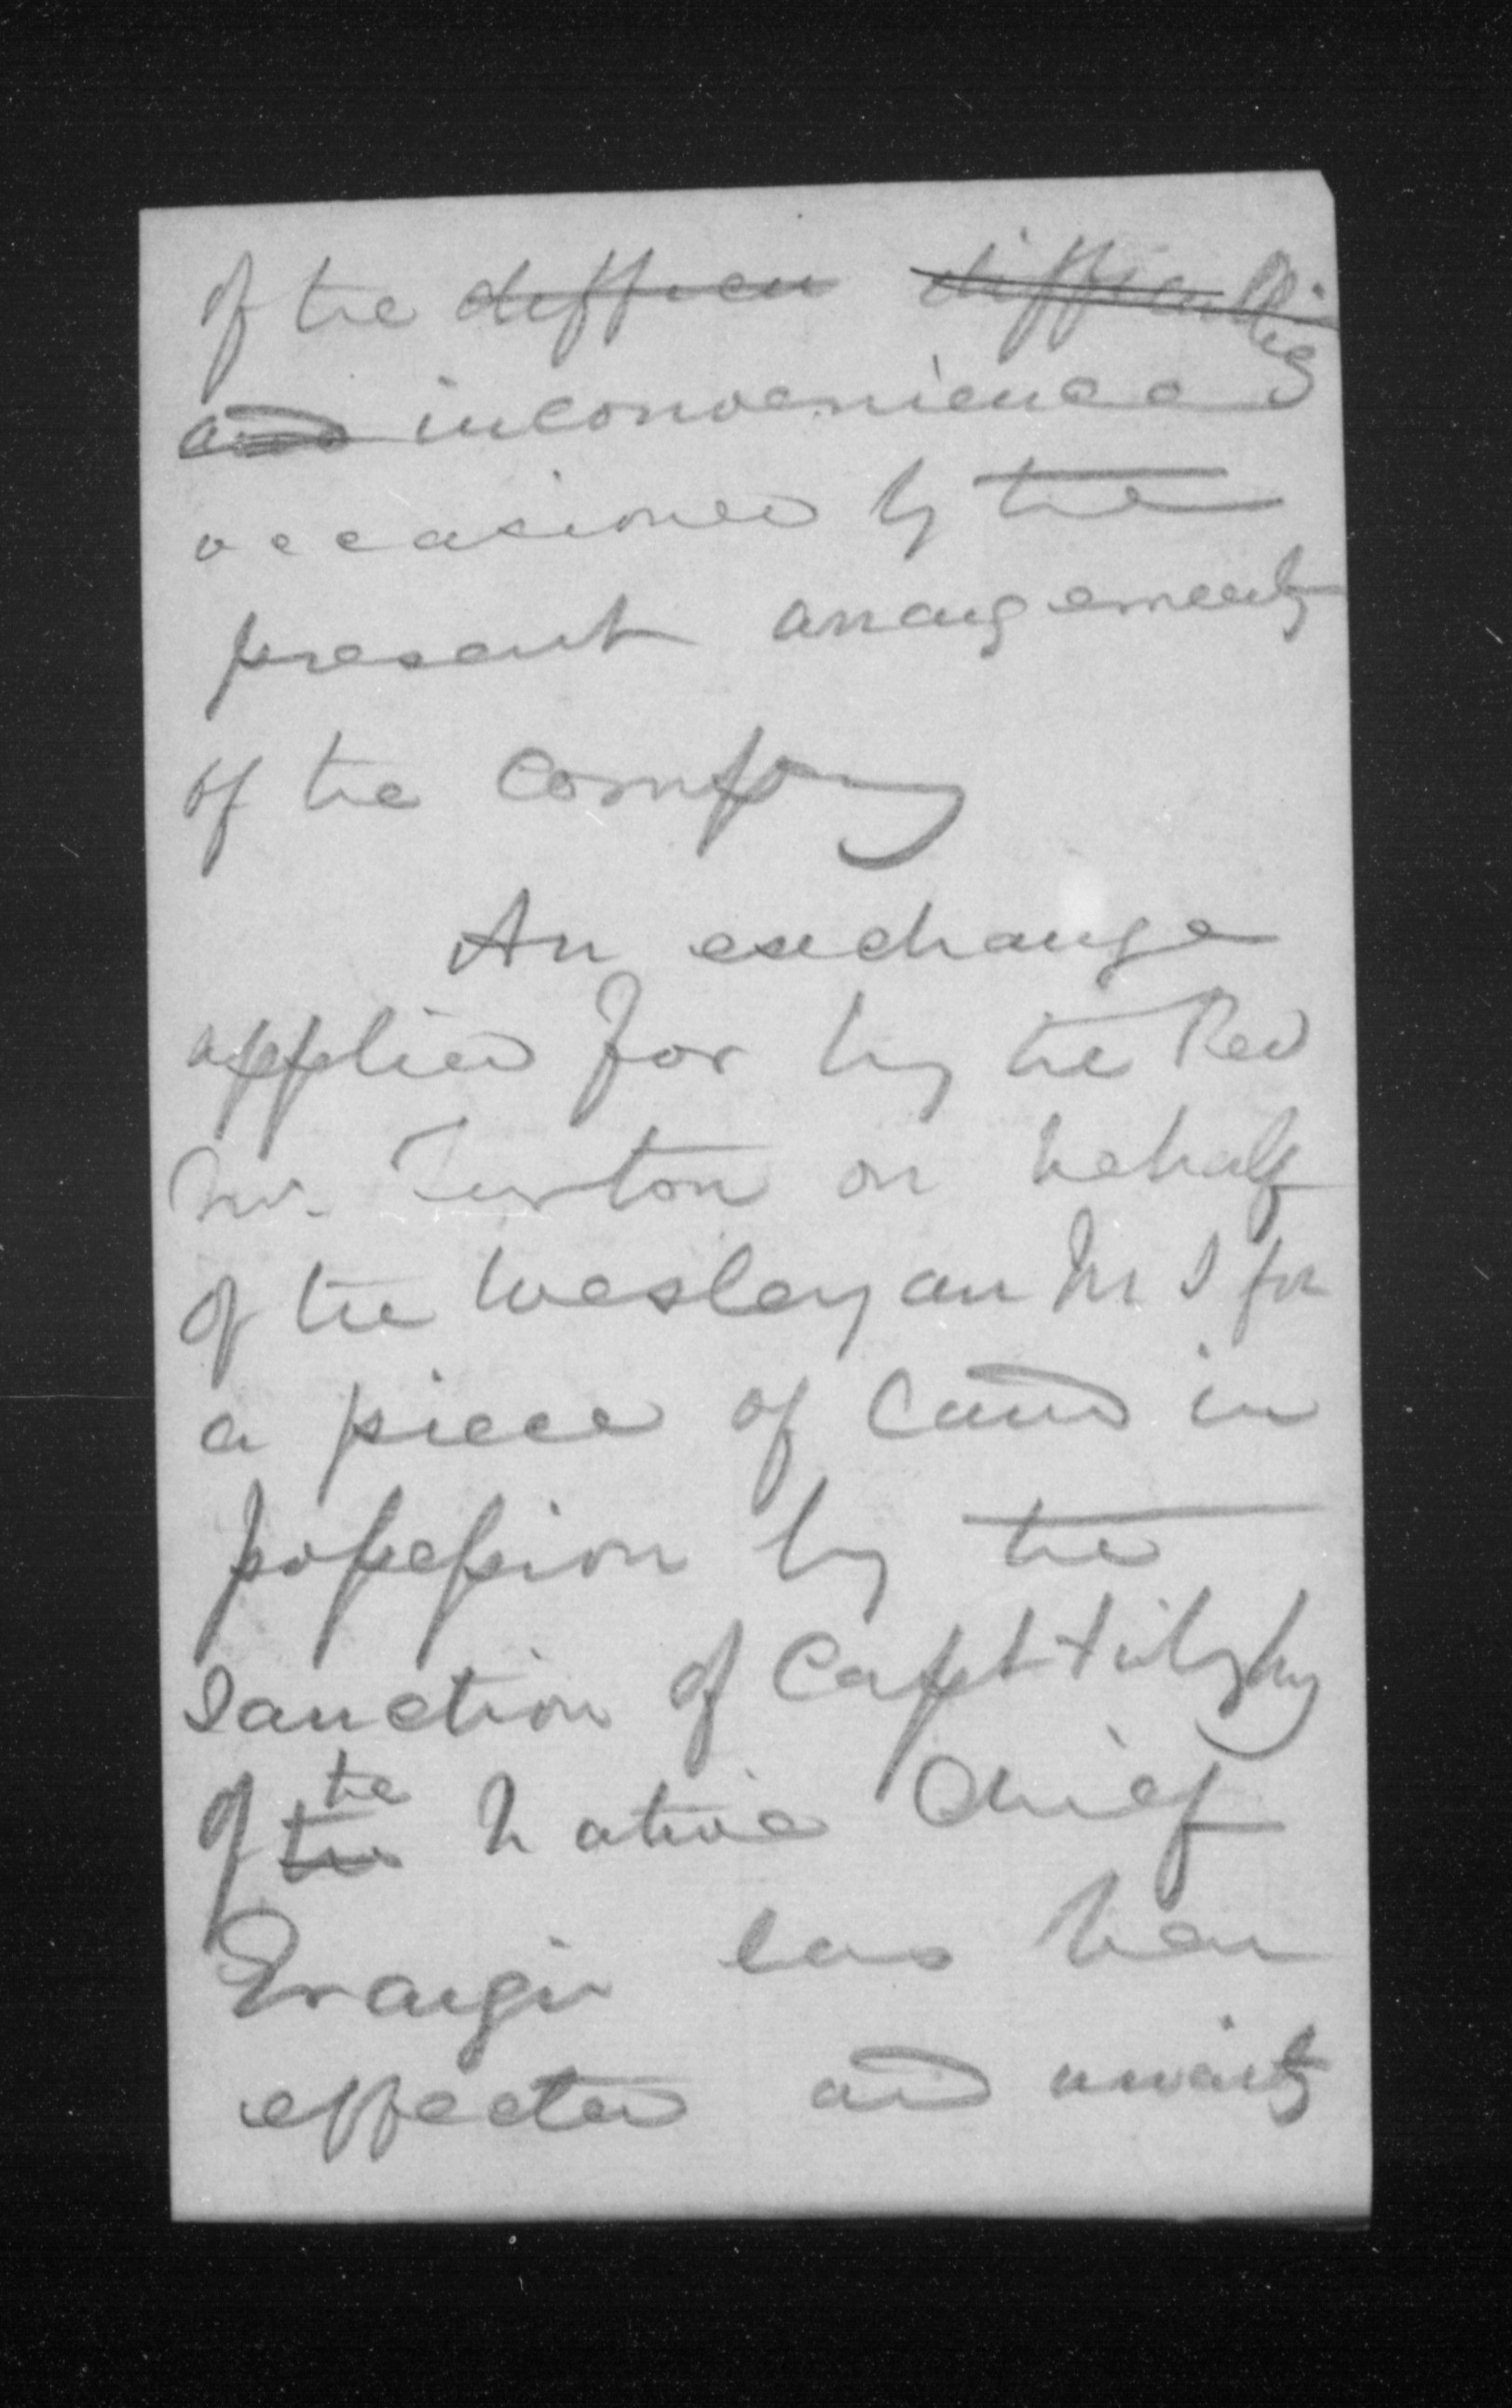 of the difficu difficulties
and inconveniences
occasioned by the
present arrangements
of the Company
An exchange
applied for by the Rev
Mr. Turton on behalf
of the Wesleyan M S for
a piece of land in
possession by the
sanction of Capt Fitzroy
of the the Native Chief
Eraigii has been
effected and awaits